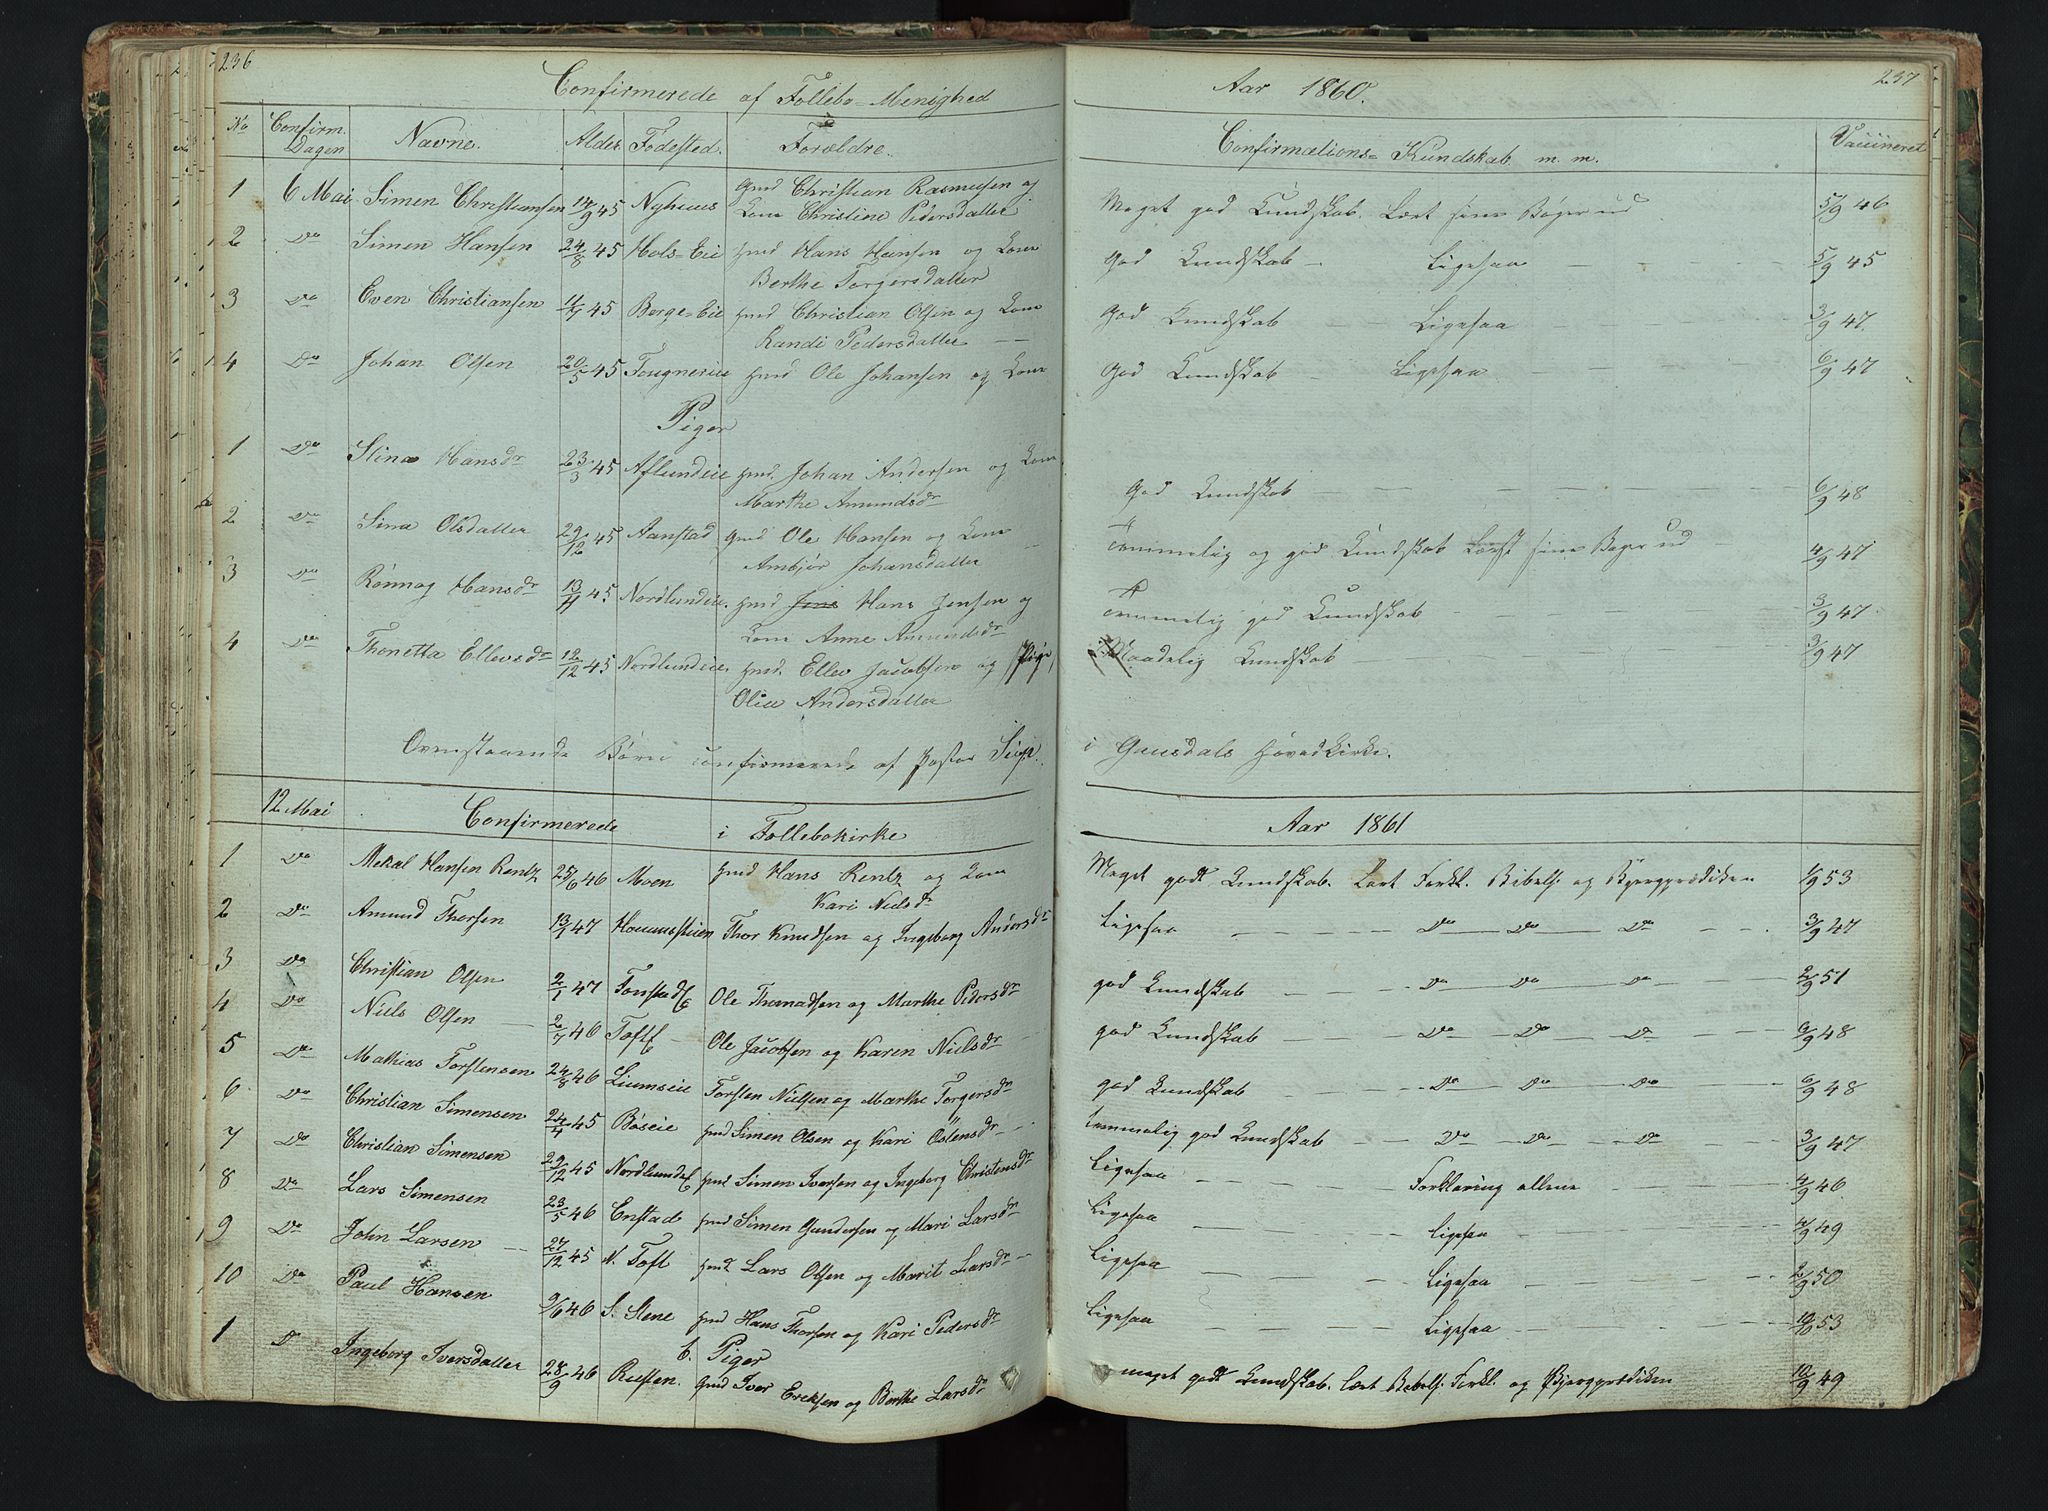 236
Confirmerede af Follebo-Menighed
No Confirm. Dagen Navne. Alder Fødested. Forældre.
1 6 Mai Simen Christiansen 14/9 45 Nyhuus Gmd Christian Rasmusen og
Kone Christine Pedersdatter
2 Do Simen Hansen 24/8 45 Hols-Eie Hmd Hans Hansen og Kone
Berthe Torgersdatter
3 Do Even Christiansen 45 Berge-Eie Hmd Christian Olsen og Kone
Randi Pedersdatter
4 Do Johan Olsen 20/5 45 Fougnereie Hmd Ole Johansen og Kone
Piger
1 Do Stina Hansdr 23/3 45 Aflundeie Hmd. Johan Andersen og Kone
Marthe Amundsdr
2 Do Sina Olsdatter 29/12 45 Aanstad Gmd Ole Hansen og Kone
Ambjør Johansdatter
3 Do Rønnog Hansdr 13/11 45 Nordlundeie. Hmd Jens Hans Jensen og
Kone Anne Amundsdr
4 Do Thonetta Ellevsdr 12/12 45 Nordlundeie Hmd. Ellev Jacobsen og Pige,
Olia Andersdatter
Ovenstaaende Børn confirmerede af Pastor
12 Mai Confirmerede i Follebokirke
1 Do Mekal Hansen Rentz 25/6 46 Moen Hmd Hans Rentz og Kone
Kari Nielsdr
2 Do Amund Thorsen 13/1 47 Thor Knudsen og Ingeborg Andersdr
3 Do Christian Olsen 2/1 47 Ole Thomadsen og Marthe Pedersdr
4 Do Niels Olsen 2/7 46 Ole Jacobsen og Karen Nielsdr
5 Do Mathias Torstensen 24/8 46 Liumseie Torsten Nielsen og Marthe Torgersdr
6 Do Christian Simensen 24/4 45 Bøseie Hmd Simen Olsen og Kari Östensdr
7 Do Christian Simensen 29/12 45 Hmd Simen Iversen og Ingeborg Christensdr
8 Do Lars Simensen 23/5 46 Enstad Hmd Simen Gundersen og Mari Larsdr
9 Do John Larsen 27/12 45 N. Toft Hmd Lars Olsen og Marit Larsdr
10 Do Paul Hansen 9/6 46 S. Stene Hmd Hans Thorsen og Kari Pedersdr
b. Piger
1 Do Ingeborg Iversdatter 28/9 46 Rusten. Gmd Iver Ericksen og Berthe Larsdr
237
Aar 1860.
Confirmations-Kundskab m. m. Vaccineret
Meget god Kundskab. Lært sine Bøger ud 5/9 46
God Kundskab Ligesaa 5/9 45
God Kundskab Ligesaa 3/9 47.
God Kundskab Ligesaa 6/9 47
God Kundskab 6/9 48
Temmelig og god Kundskab Læst sine Bøger ud 4/9 47
Temmelig god Kundskab 3/9 47
Maadelig Kundskab 3/9 47
i Gausdals Hovedkirke.
Aar 1861
Meget godt Kundskab. Lært Forkl. Bibelh og Bjergprædiken 1/9 53
Ligesaa Do Do Do 3/9 47
god Kundskab Do Do Do 2/9 51
god Kundskab Do Do Do 6/9 48
god Kundskab Do Do Do 6/9 48
temmelig god Kundskab Do Do Do 3/9 47
Ligesaa Forklaring allene 4/9 46
Ligesaa Ligesaa 4/9 49
Ligesaa Ligesaa 2/9 50
Ligesaa Ligesaa 53
meget godt Kundskab. lært Bibelh. Forkl. og Bjergprædiken 10/9 49